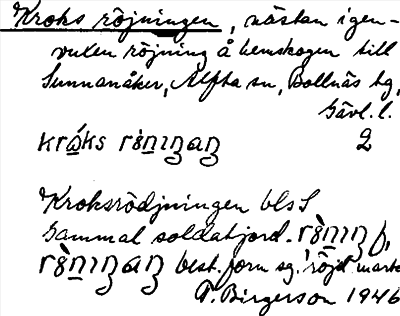 Kroks röjningen, nästan igen-
vuxen röjning å hemskogen till
Sunnanåker, Alfta sn, Bollnäs tg,
Gävl. l.
2
Kroksrödjningen bls S
Gammal soldatjord.
best. form sg. 'röjd mark
Birgerson 1946